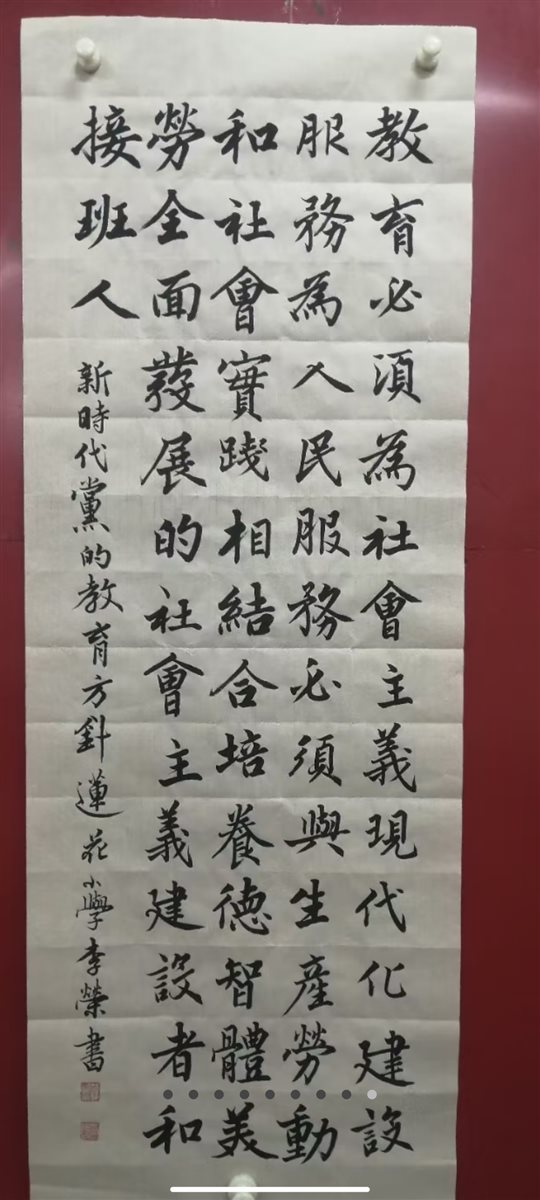 教育必須為社會主義現代化建設
服務為人民服務必須與生產勞動
和社會實踐相結合培養德智體美
勞全面發展的社會主義建設者和
接班人
新時代黨的教育方針蓮花小學李榮書